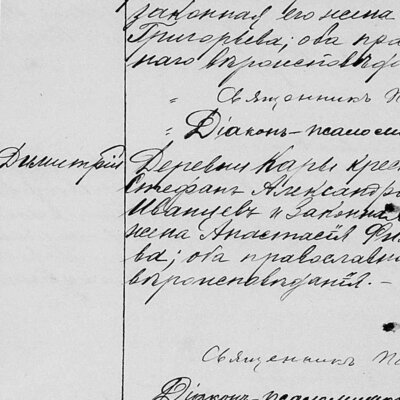 законная его жена
Григорьева; оба пра
наго вѣроисповѣд
" Священникъ
" Діаконъ-псалом
Димитрій
Деревни Кары крес
Стефанъ Александро
Иванцевъ и законная
жена Анастасія Фи
ва; оба православна
вѣроисповѣданія. –
Священникъ
Діаконъ-псаломщик